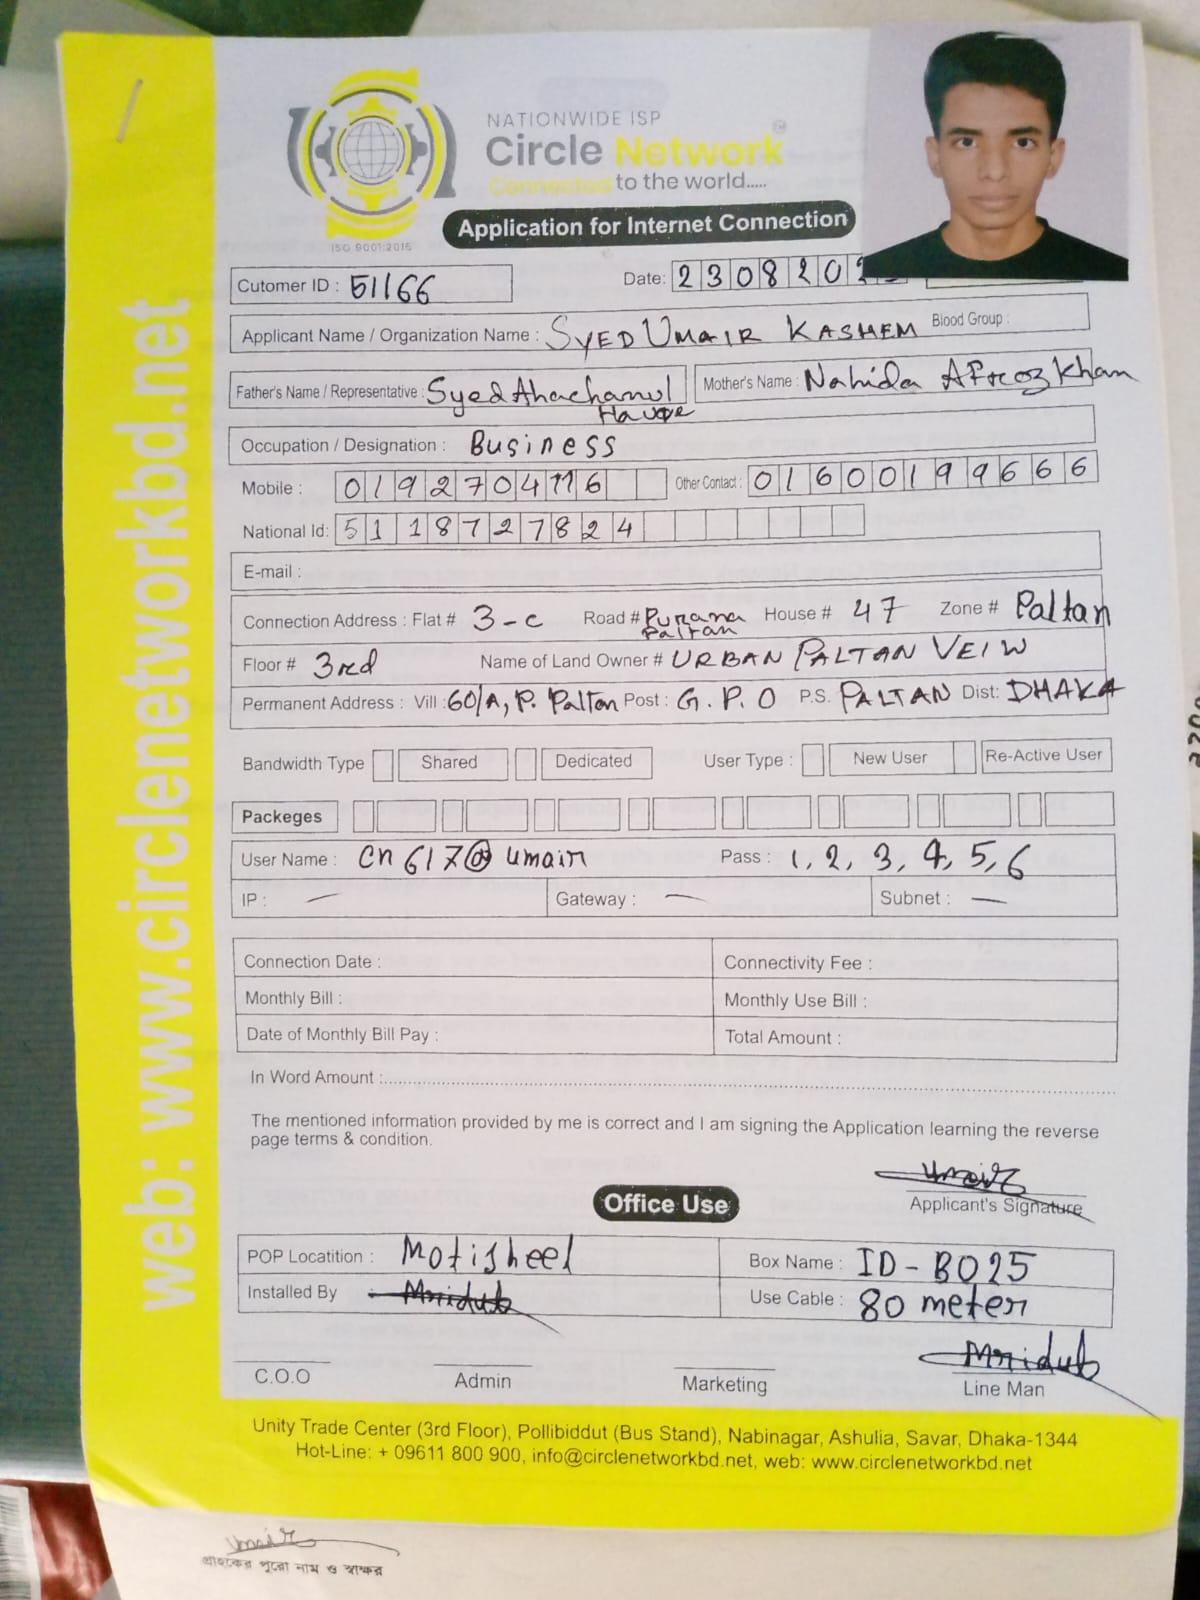 NATIONWIDE ISP
Circle Network
Connected to the world.....
ISO 9001:2015
Application for Internet Connection
Cutomer ID : 51166
Date: 2308202
Applicant Name / Organization Name : SYED UMAIR KASHEM Blood Group :
Father's Name / Representative : Syed Ahachanul Haque
Mother's Name : Nahida Afroz Khan
Occupation / Designation : Business
Mobile : 01927041116 Other Contact : 01600199666
National Id: 5118727824
E-mail :
Connection Address : Flat # 3-C Road # Purana Paltan House # 47 Zone # Paltan
Floor # 3rd Name of Land Owner # URBAN PALTAN VEIW
Permanent Address : Vill : 60/A, P. Paltan Post : G.P.O P.S. PALTAN Dist: DHAKA
Bandwidth Type Shared Dedicated User Type : New User Re-Active User
Packeges
User Name : cn617@umair Pass : 1, 2, 3, 4, 5, 6
IP : — Gateway : — Subnet : —
Connection Date : Connectivity Fee :
Monthly Bill : Monthly Use Bill :
Date of Monthly Bill Pay : Total Amount :
In Word Amount :
The mentioned information provided by me is correct and I am signing the Application learning the reverse
page terms & condition.
Umair
Applicant's Signature
Office Use
POP Locatition : Motijheel Box Name : ID-B025
Installed By Mridub Use Cable : 80 meter
Mridub
C.O.O Admin Marketing Line Man
Unity Trade Center (3rd Floor), Pollibiddut (Bus Stand), Nabinagar, Ashulia, Savar, Dhaka-1344
Hot-Line: + 09611 800 900, info@circlenetworkbd.net, web: www.circlenetworkbd.net
web: www.circlenetworkbd.net
Umair
গ্রাহকের পুরো নাম ও স্বাক্ষর